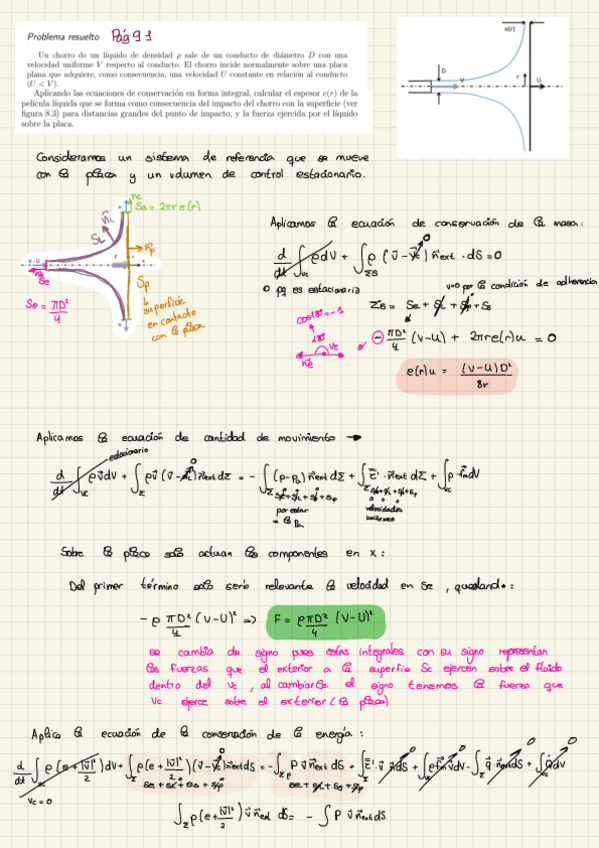 Problema resuelto Pág 91
Un chorro de un líquido de densidad ρ sale de un conducto de diámetro D con una
velocidad uniforme V respecto al conducto. El chorro incide normalmente sobre una placa
plana que adquiere, como consecuencia, una velocidad U constante en relación al conducto
(U < V).
Aplicando las ecuaciones de conservación en forma integral, calcular el espesor e(r) de la
película líquida que se forma como consecuencia del impacto del chorro con la superficie (ver
figura 8.3) para distancias grandes del punto de impacto, y la fuerza ejercida por el líquido
sobre la placa.
e(r)
D
V
r
U
Consideramos un sistema de referencia que se mueve
con la placa y un volumen de control estacionario.
Ss = 2πr e(r)
SL
V-U
Se
Sp
Se = πD²/4
superficie
en contacto
con la placa
Aplicamos la ecuación de conservación de la masa:
d/dt ∫Vc ρ dV + ∫ΣS ρ (v̄ - v̄c) n̄ext · dS = 0
0 pq es estacionaria
v=0 por la condición de adherencia
ΣS = Se + SL + Sp + Ss
cos 180 = -1
- πD²/4 (V-U) + 2πr e(r) u = 0
e(r) u = (V-U)D²/8r
Aplicamos la ecuación de cantidad de movimiento →
estacionario
d/dt ∫Vc ρv̄ dV + ∫Σ ρv̄ (v̄ - v̄c) n̄ext dΣ = - ∫Σ (p-pa) n̄ext dΣ + ∫Σ τ̄' · n̄ext dΣ + ∫Vc ρ f̄m dV
por estar
a la Pa
velocidades
uniformes
Sobre la placa solo actuan las componentes en x:
Del primer término solo sería relevante la velocidad en Se, quedando:
- ρ πD²/4 (V-U)² => F = ρ πD²/4 (V-U)²
se cambia de signo pues estas integrales con su signo representan
las fuerzas que el exterior a la superficie Sc ejercen sobre el fluido
dentro del Vc, al cambiarle el signo tenemos la fuerza que
Vc ejerce sobre el exterior (la placa)
Aplico la ecuación de la conservación de la energía:
d/dt ∫Vc ρ (e + |v̄|²/2) dV + ∫Σ ρ (e + |v̄|²/2)(v̄ - v̄c) n̄ext dS = - ∫Σ P v̄ n̄ext dS + ∫Σ τ̄' · v̄ n̄ dS + ∫ ρ f̄m v̄ dV - ∫Σ q̄ · n̄ext dS + ∫ Q dV
Vc = 0
Se + SL + Ss + Sp
Se + SL + Ss + Sp
∫Σ ρ (e + |v̄|²/2) v̄ n̄ext dS = - ∫ P v̄ n̄ext dS